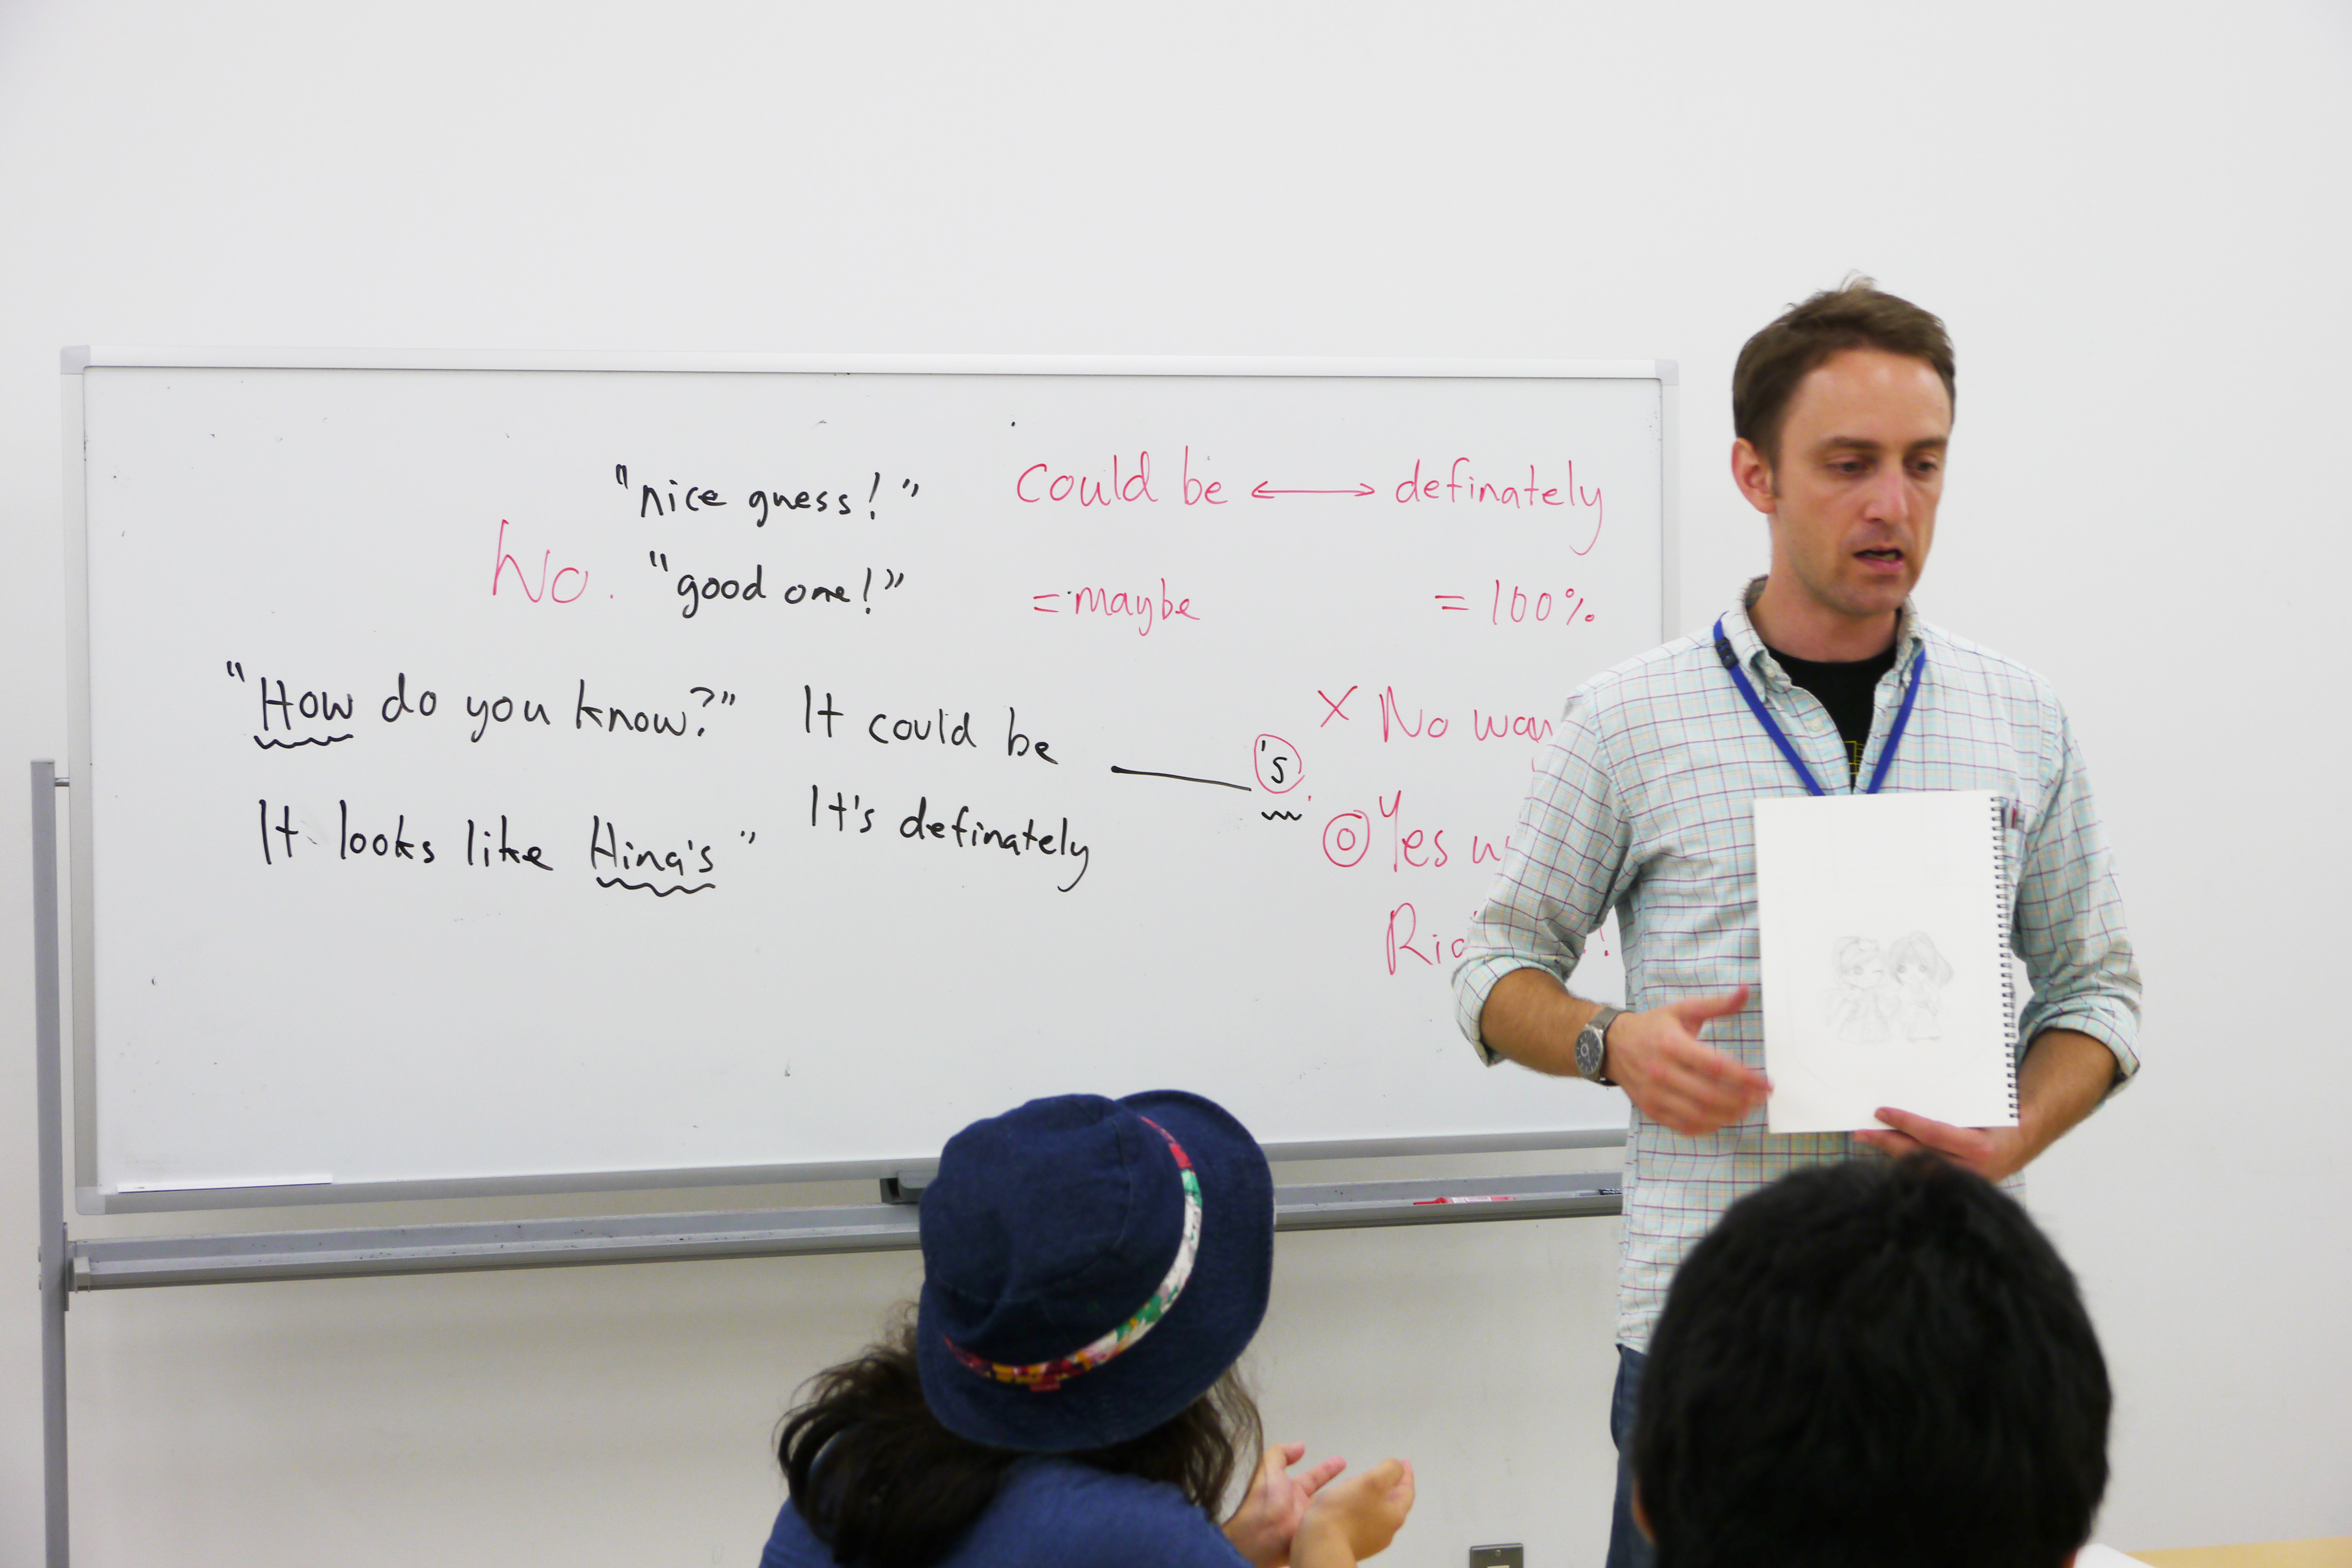 "nice guess!"
No. "good one!"
"How do you know?"
It looks like Hina's"
It could be ____'s.
It's definately
could be ⟷ definately
= maybe = 100%
× No way
◎ Yes